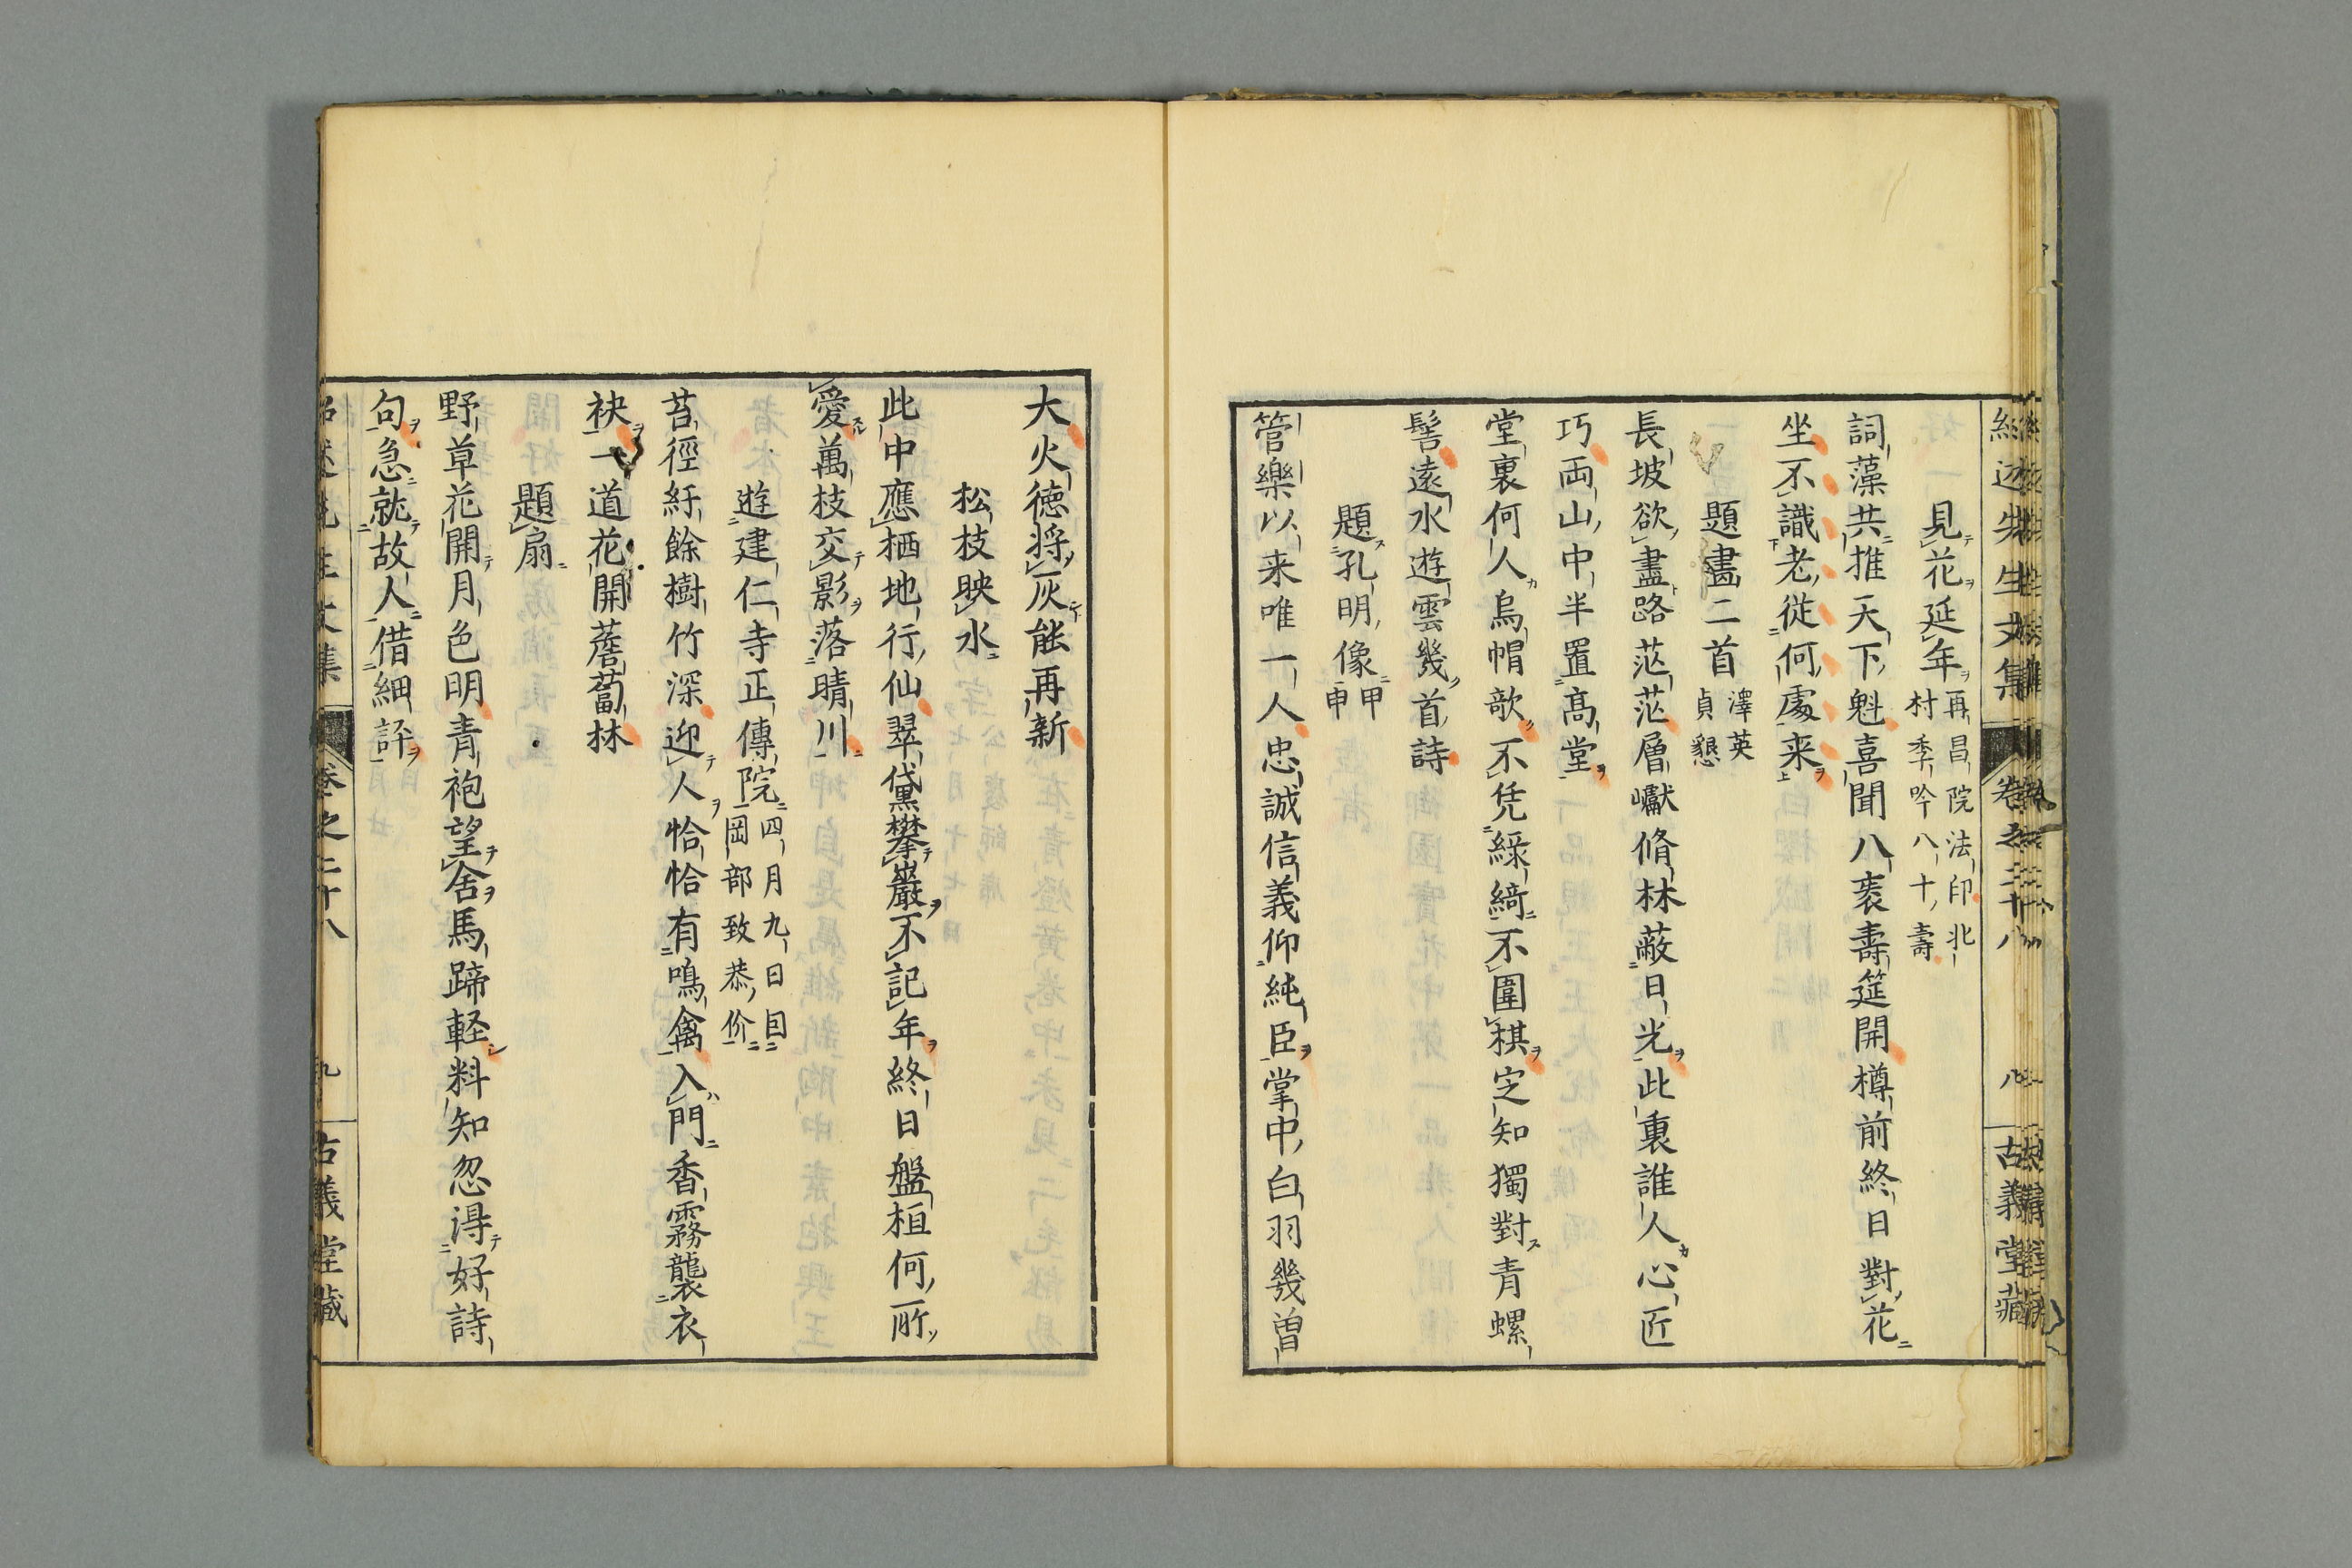 紹述先生文集 卷之二十八 八 古義堂藏
見花延年 再昌院法印北村季吟八十壽
詞藻共推天下魁喜聞八袠壽筵開樽前終日對花
坐不識老從何處来
題畫二首 澤英貞懇
長坡欲盡路茫茫層巘脩林蔽日光此裏誰人心匠
巧両山中半置髙堂
堂裏何人烏帽歌不凭綠綺不圍棋定知獨對青螺
髻遠水遊雲幾首詩
題孔明像 甲申
管樂以来唯一人忠誠信義仰純臣掌中白羽幾曽
大火徳将灰能再新
松枝映水
此中應栖地行仙翠黛攀巖不記年終日盤桓何所
愛萬枝交影落晴川
遊建仁寺正傳院 四月九日因岡部致恭价
苔徑紆餘樹竹深迎人恰恰有鳴禽入門香霧襲衣
袂一道花開薝蔔林
題扇
野草花開月色明青袍望舍馬蹄軽料知忽得好詩
句急就故人借細評
紹述先生文集 卷之二十八 九 古義堂藏